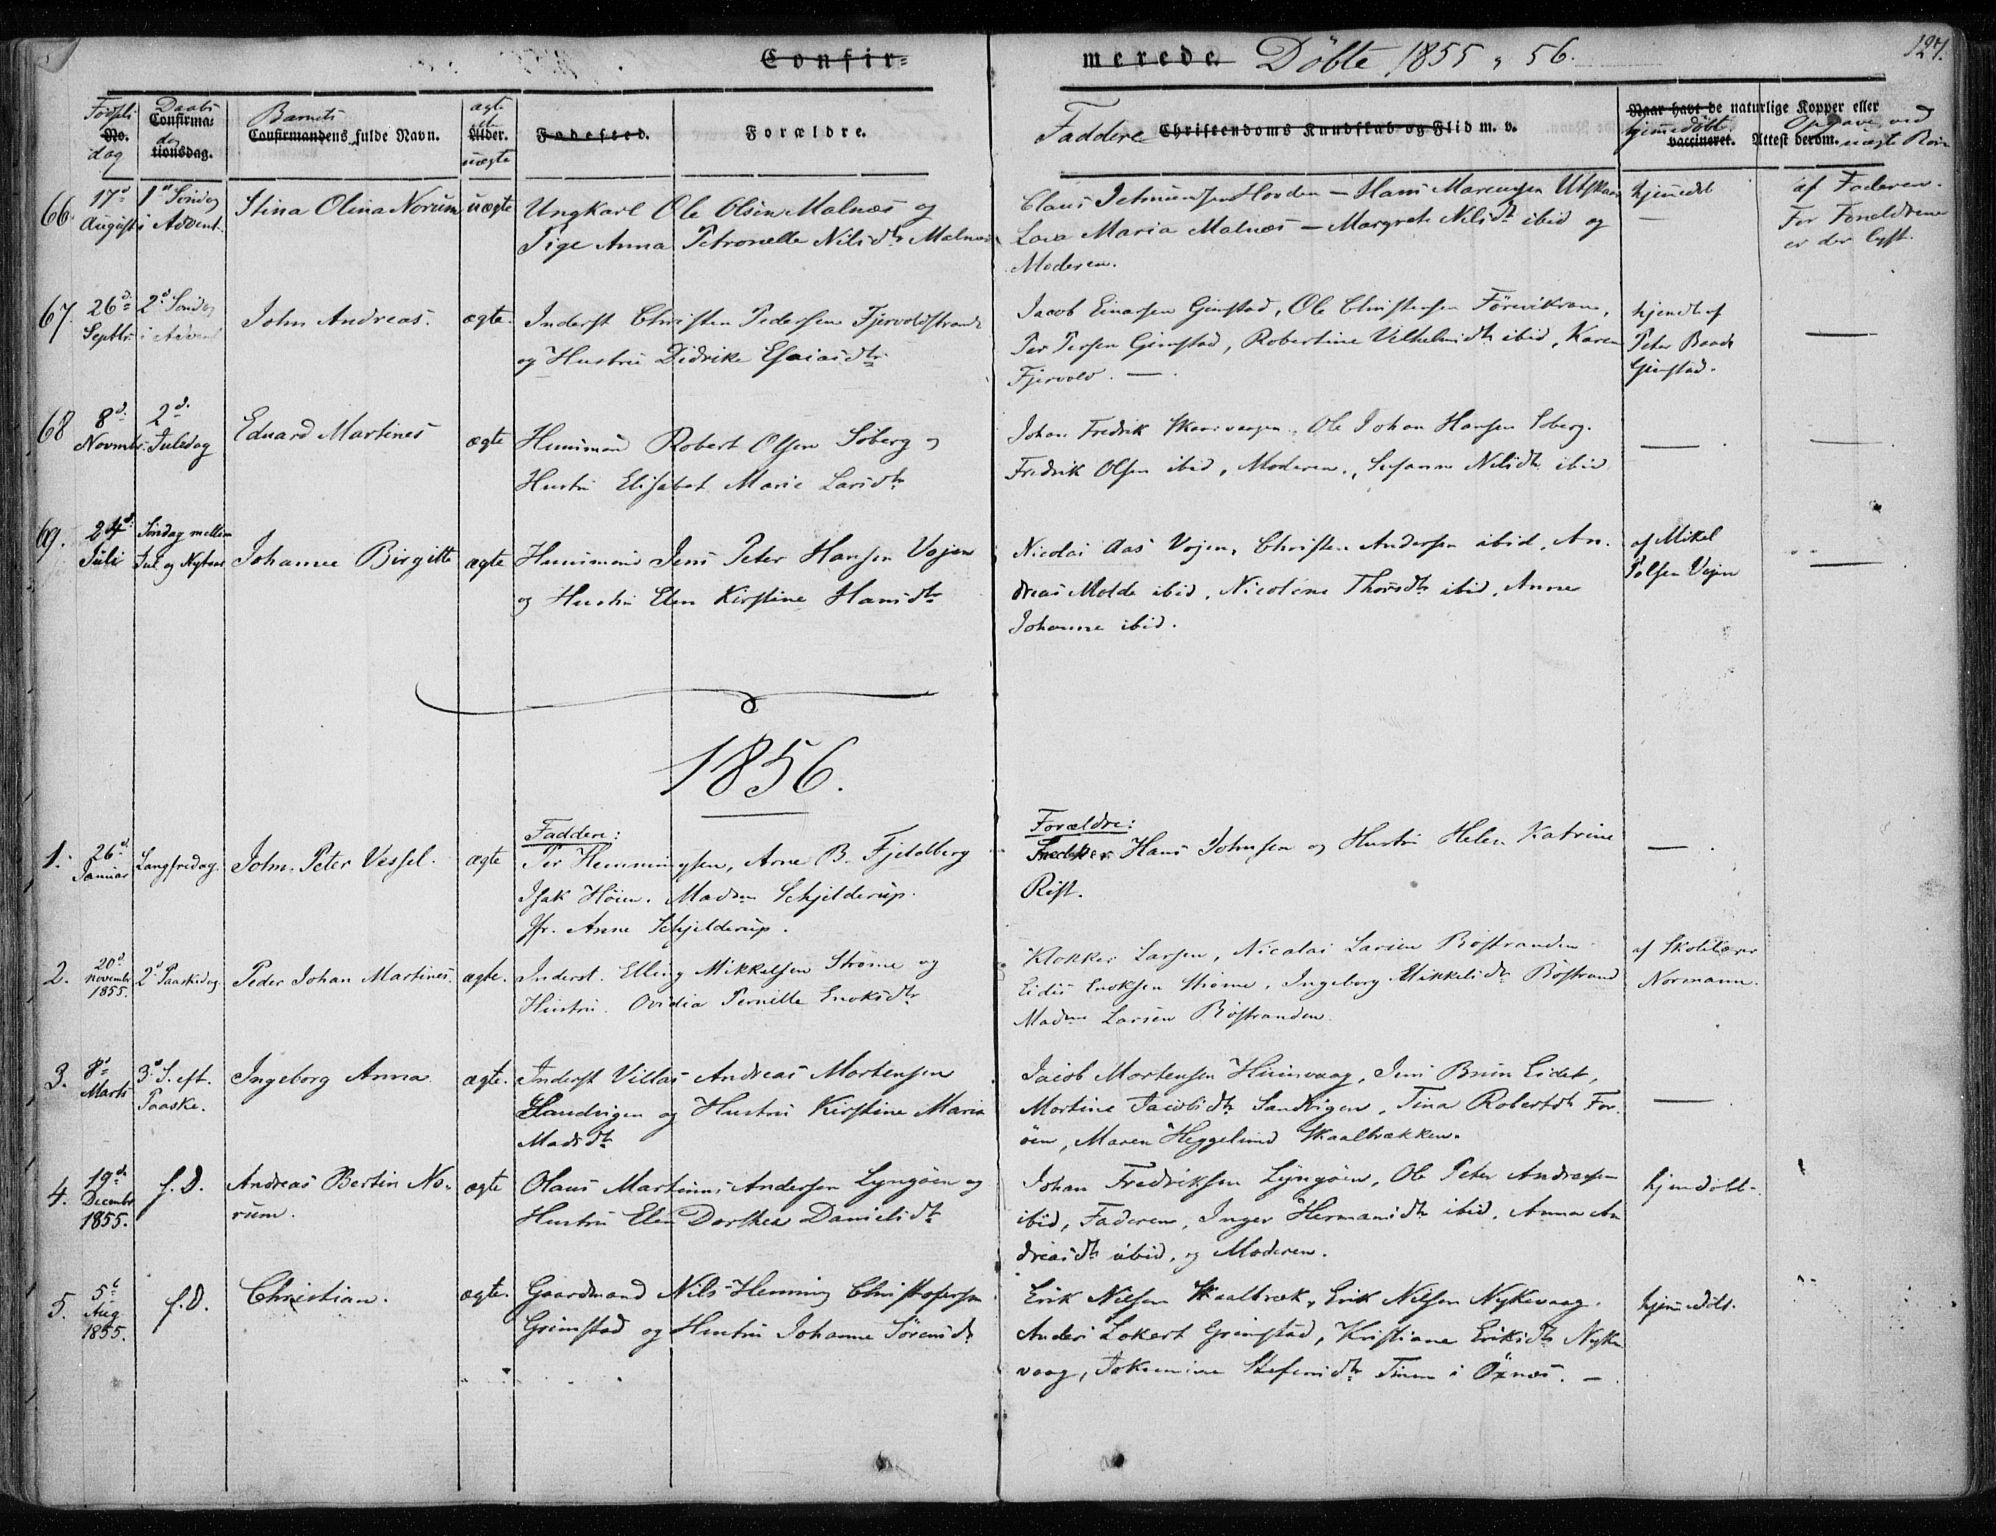 Confirmerede. Döbte 1855 & 56. 127.
Fødsels dag No. Daabs dag Confirmationsdag. Barnets Confirmandens fulde Navn. ægte el. uægte Alder. Fødested. Forældre. Faddere Christendoms Kundskab og Flid m. v. Naar havt de naturlige Kopper eller vaccineret. Attest derom. hjemmedöbt Opgave ved uægte Børn
66. 17d August 1ste Søndag i Advent. Stina Olina Norum uægte Ungkarl Ole Olsen Malnæs og
Pige Anna Petronelle Nilsdtr Malnæs
Claus Hovden — Hans Marensen Utskar
Maria Malnæs — Margrete Nilsdtr ibid og
Moderen.
hjemedöbt —
af Faderen.
For Forældrene
er der lyst.
67 26d Septbr 2d Söndag i Advent John Andreas. ægte. Inderst Christen Pedersen Fjervoldstrand
og Hustru Didrike Esaiasdtr
Jacob Einarsen Grimstad, Ole Christensen
Per Persen Grimstad, Robertine Velhelmsdtr ibid, Karen
Fjervold. —
hjemdt af
Peter
Grimstad.
—
68 8d Novmbr. 2d Juledag Eduard Martines ægte Huusmand Robert Olsen Söberg og
Hustru Elisabet Marie Larsdtr
Johan Fredrik Skarsvaagen, Ole Johan Hansen Soberg.
Fredrik Olsen ibid, Moderen, Susanne Nilsdtr ibid
— —
69. 24d Juli Søndag mellem Jul og Nytaar Johanne Birgitte ægte Huusmand Jens Peter Hansen Vojen
og Hustru Elen Kirstine Hansdtr
Nicolai Aas Vojen, Christen Andersen ibid, An-
dreas Molde ibid, Nicoline Thorsdtr ibid, Anne
Johanne ibid.
af Mikel
Polsen Vojen
—
1856.
1. 26d Januar Langfredag. John Peter Vessel. ægte
Faddere:
Per Hemmingsen, Arne B. Fjeldberg
Isak Höien. Madm Schjelderup.
Jfr. Anne Schjelderup.
Forældre:
Hans Johnsen og Hustru Helen Katrine
Rist.
—
2. 20d november 1855. 2d Paaskedag Peder Johan Martines. ægte. Inderst. Elling Mikkelsen Strömme og
Hustru. Ovidia Pernille Enoksdtr
Klokker Larsen, Nicolai Larsen Böstranden
Eidis Enoksen Strömme, Ingeborg Mikkelsdtr Böstrand
Madme Larsen Böstranden
af Skolelærer
Normann.
3. 8d Marts 3d S. eft. Paaske. Ingeborg Anna ægte. Inderst Villas Andreas Mortensen
Sandvigen og Hustru Kirstine Maria
Madsdtr
Jacob Mortensen Huusvaag, Jens Bruun Eidet,
Martine Jacobsdtr Sandvigen, Tina Robertsdtr For-
öen, Maren Heggelund Skaalbrækken.
—
4. 19d Decembr 1855. f. D. Andreas Bertin No-
rum. ægte Olaus Martinus Andersen Lyngöen og
Hustru Elen Dorthea Danielsdtr
Johan Fredriksen Lyngöen, Ole Peter Andreasen
ibid, Faderen, Inger Hermansdtr ibid, Anna An
dreasdtr ibid, og Moderen.
hjemdöbt.
5. 5te Aug 1855. f. D. Christian. ægte. Gaardmand Nils Henning Christofersen
Grimstad og Hustru Johanne Sörensdtr
Erik Nilsen Skaalbræk, Erik Nilsen Nykvaag.
Anders Lokert Grimstad, Kristiane Eriksdtr Nyk-
vaag, Jokumine Stefensdtr Tinen i Öxnæs. —
hjemmedöbt.